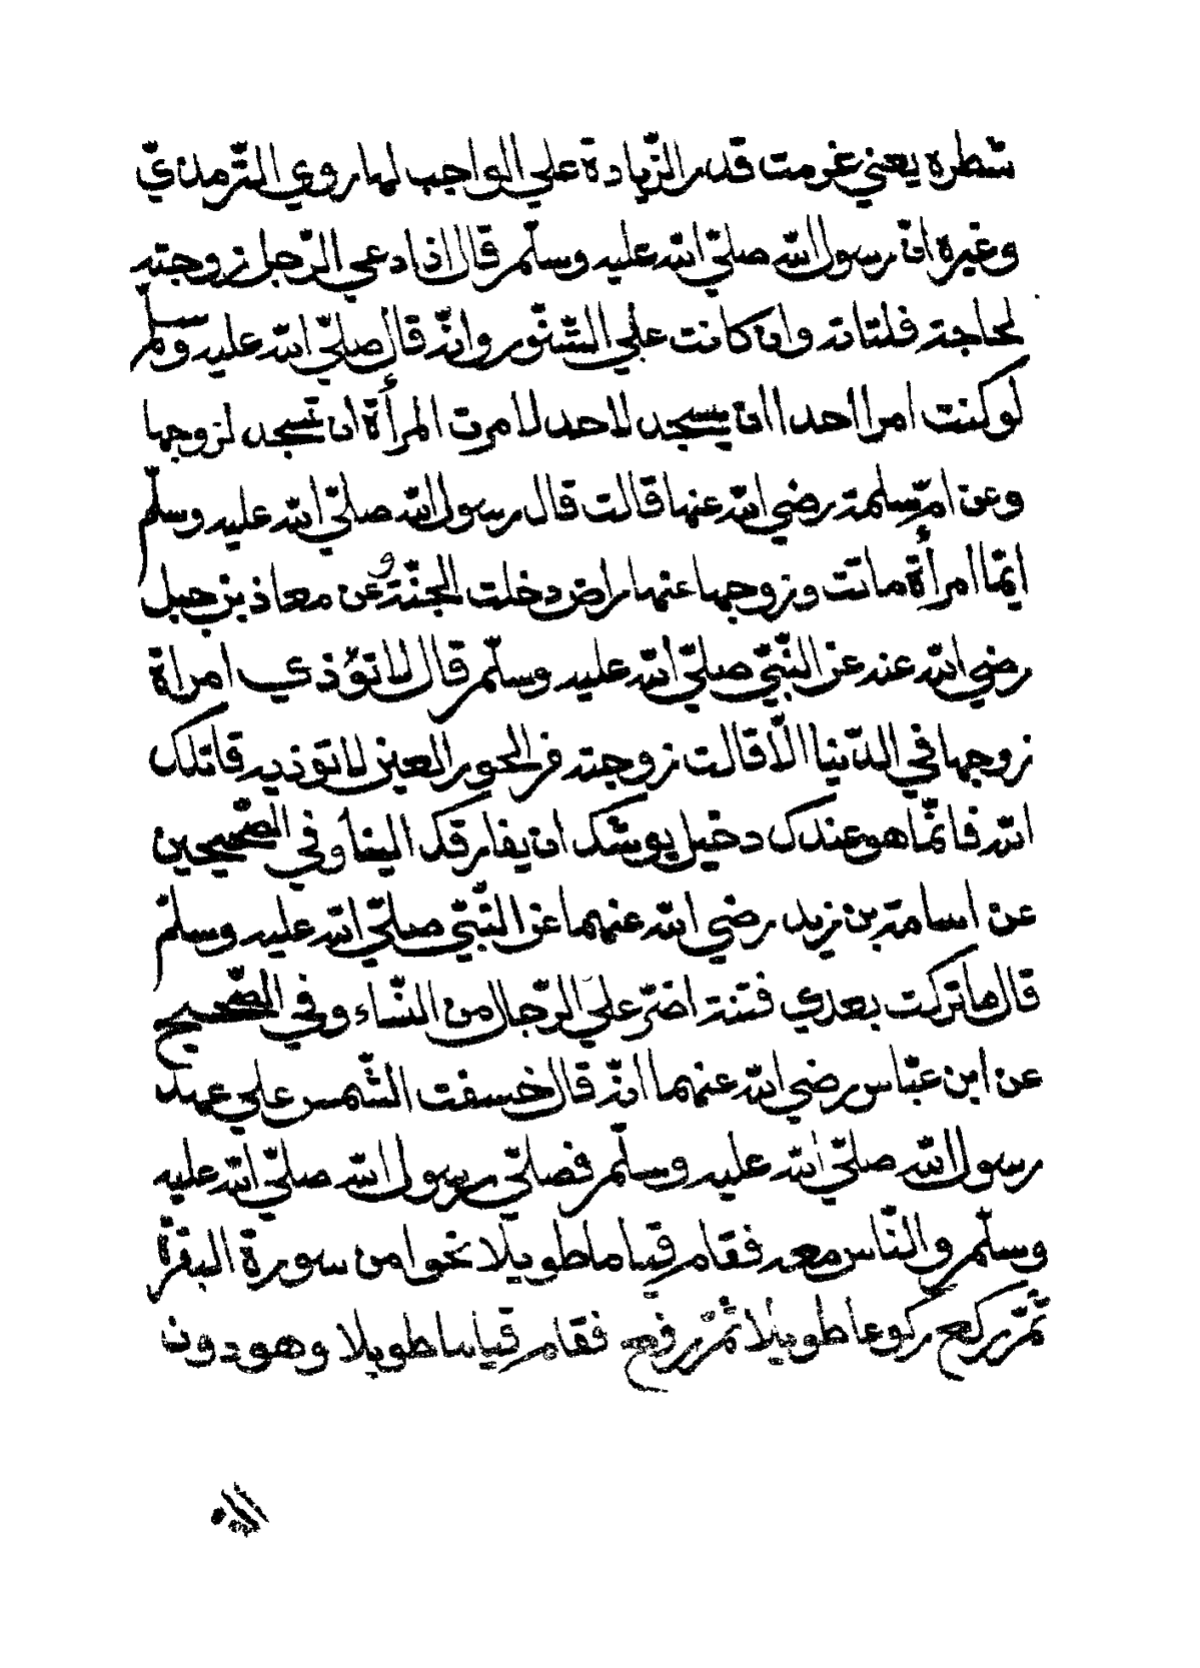 شطره يعني غرمت قدر الزّيادة علي الواجب لما روي التّرمذيّ
وغيره انّ رسول الله صلّي الله عليه وسلّم قال اذا دعي الرّجل زوجته
لحاجة فلتاته وان كانت علي التّنّور وانّه قال صلّي الله عليه وسلّم
لو كنت امرا احدا ان يسجد لاحد لامرت المرأة ان تسجد لزوجها
وعن امّ سلمة رضي الله عنها قالت قال رسول الله صلّي الله عليه وسلّم
ايّما امرأة ماتت وزوجها عنها راض دخلت الجنّة وعن معاذ بن جبل
رضي الله عنه عن النّبيّ صلّي الله عليه وسلّم قال لا تؤذي امراة
زوجها في الدّنيا الّا قالت زوجته من الحور العين لا توذيه قاتلك
الله فانّما هو عندك دخيل يوشك ان يفارقك الينا وفي الصّحيحين
عن اسامة بن زيد رضي الله عنهما عن النّبيّ صلّي الله عليه وسلّم
قال ما تركت بعدي فتنة اضرّ علي الرّجال من النّساء وفي الصّحيح
عن ابن عبّاس رضي الله عنهما انّه قال خسفت الشّمس علي عهد
رسول الله صلّي الله عليه وسلّم فصلّي رسول الله صلّي الله عليه
وسلّم والنّاس معه فقام قياما طويلا نحوا من سورة البقرة
ثمّ ركع ركوعا طويلا ثمّ رفع فقام قياما طويلا وهو دون